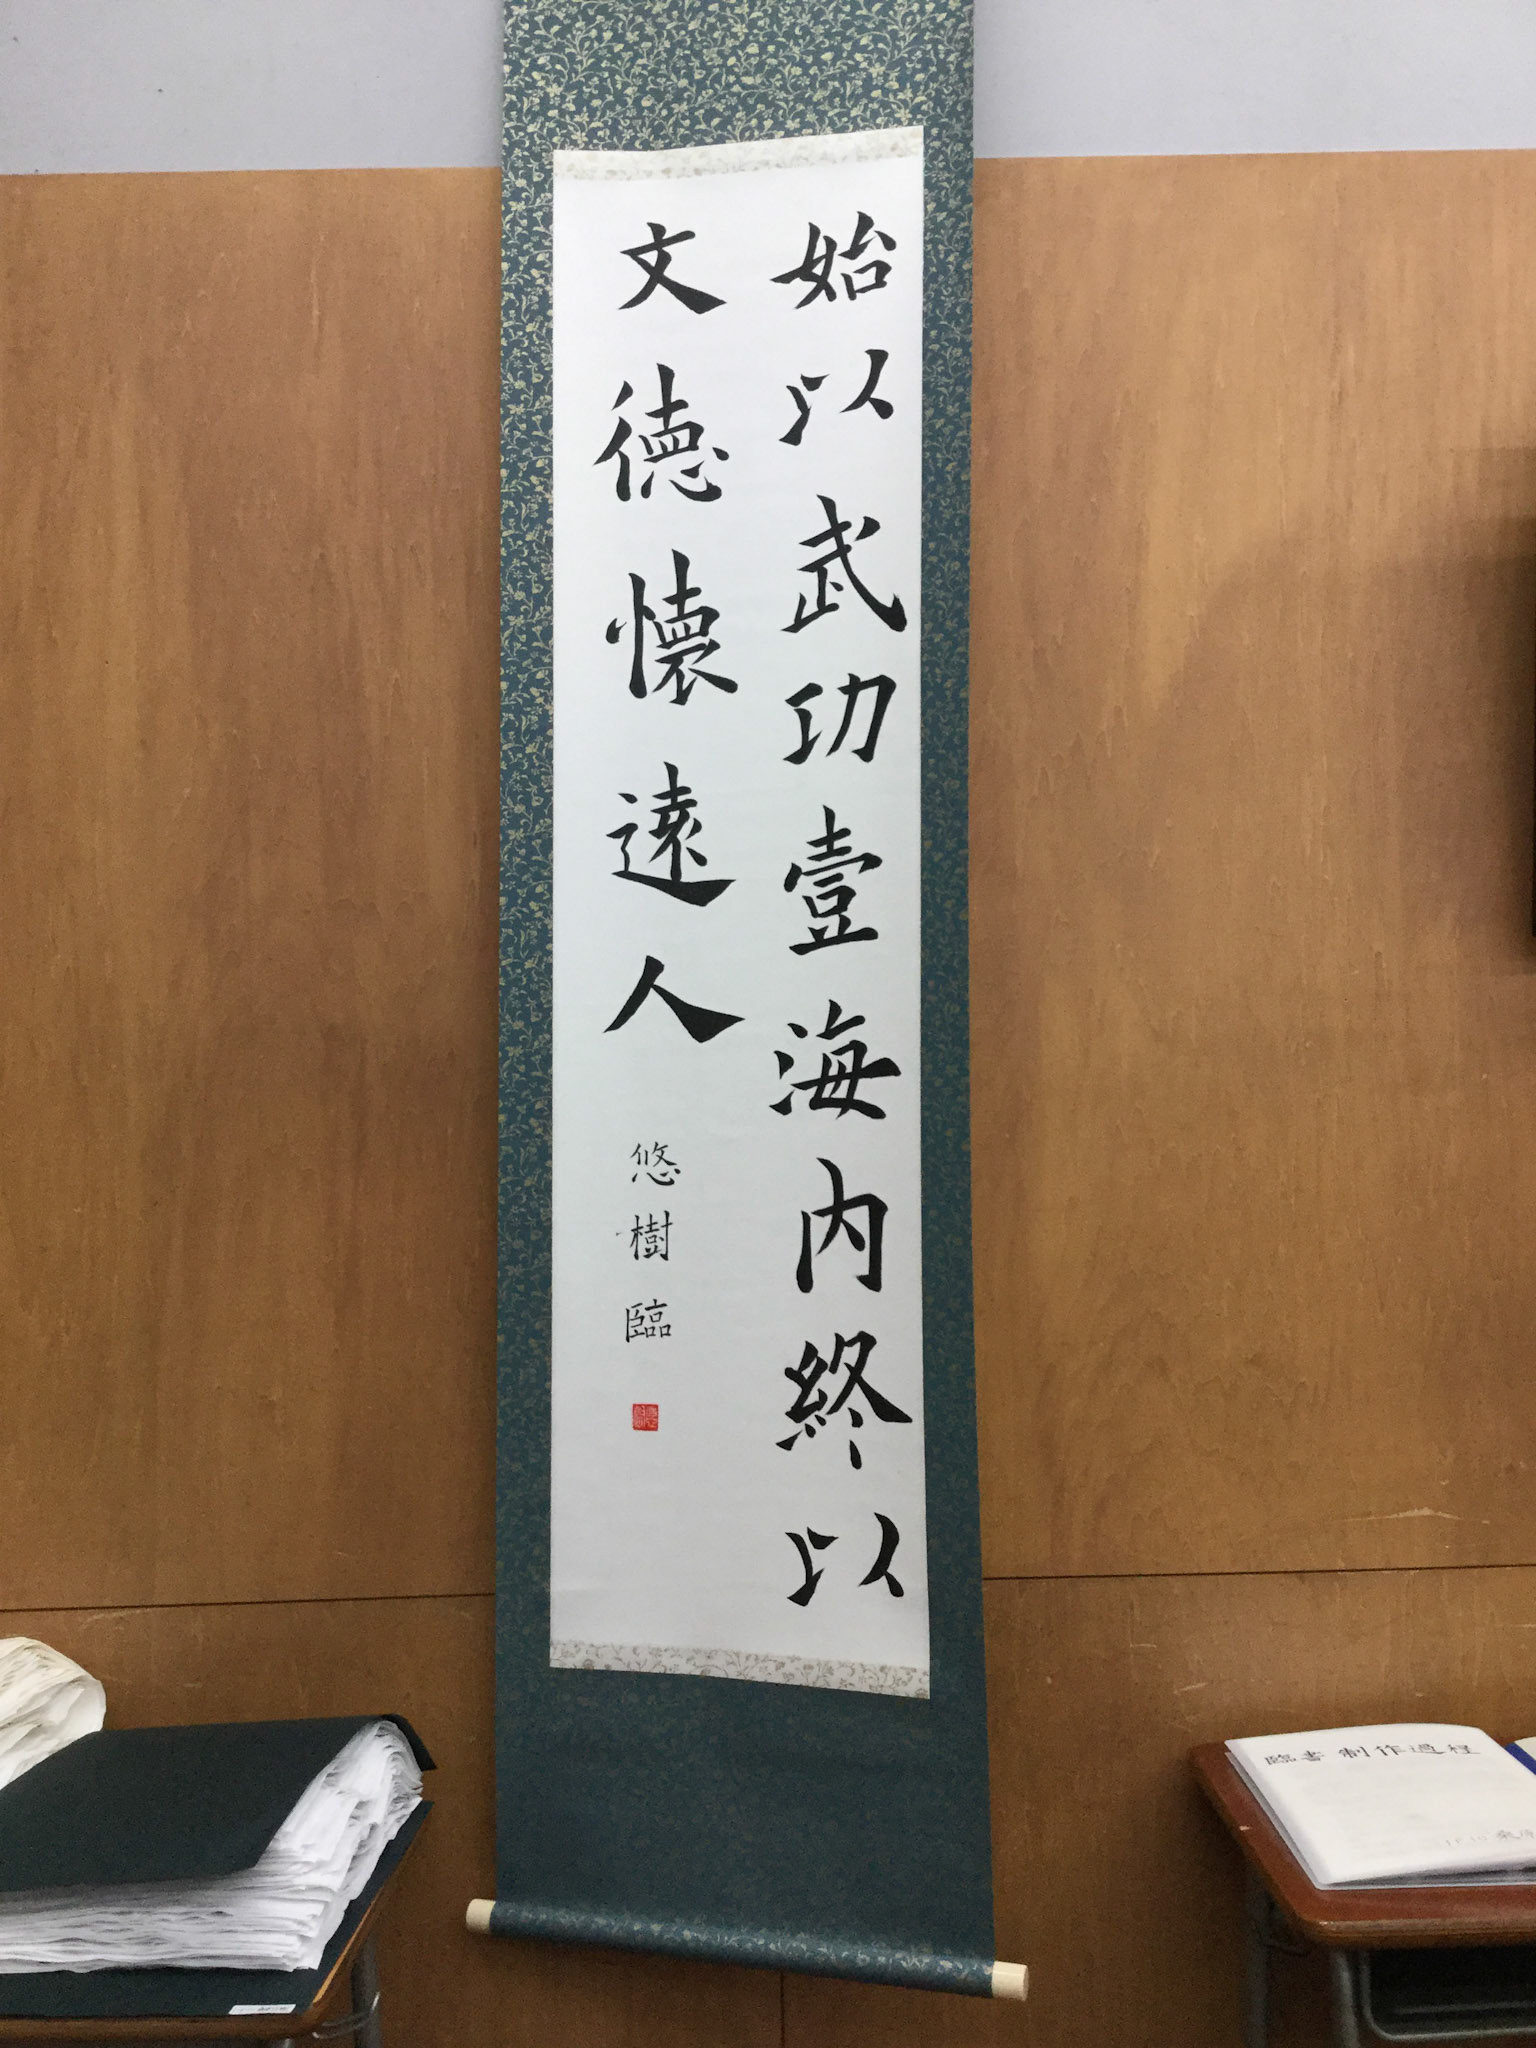 始以武功壹海内終以
文德懷遠人
悠樹臨
臨書 制作過程